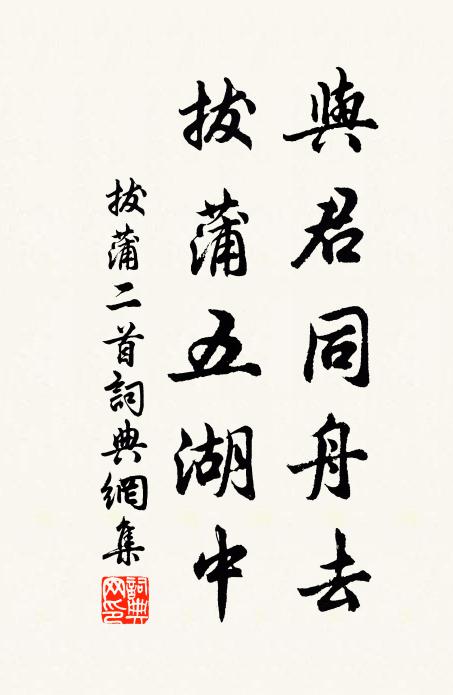 與君同舟去
拔蒲五湖中
拔蒲二首詞典網集
詞典
网印